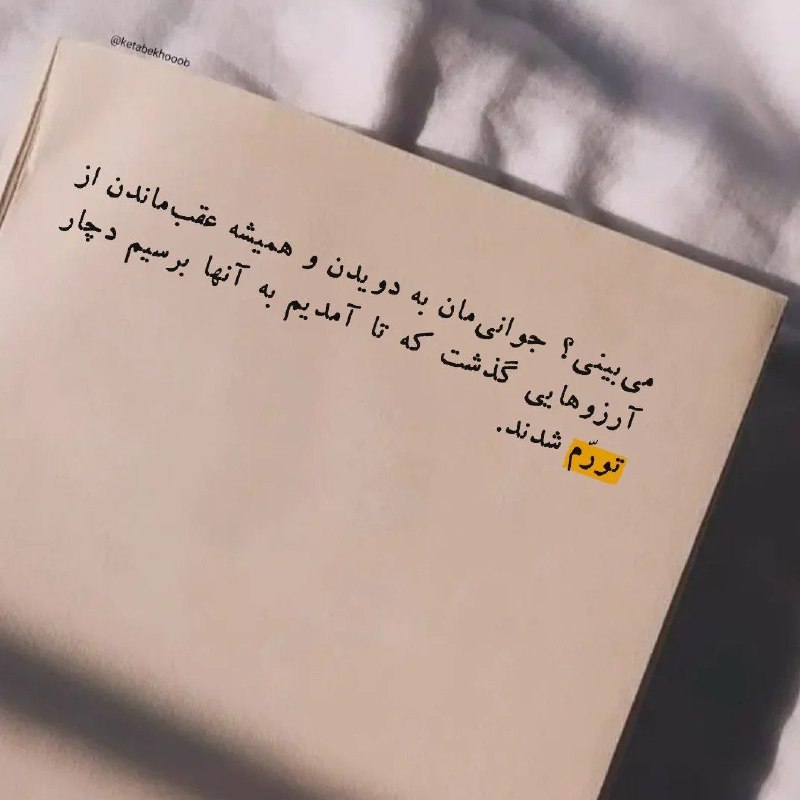 @ketabekhooob
می‌بینی؟ جوانی‌مان به دویدن و همیشه عقب‌ماندن از
آرزوهایی گذشت که تا آمدیم به آنها برسیم دچار
تورّم شدند.